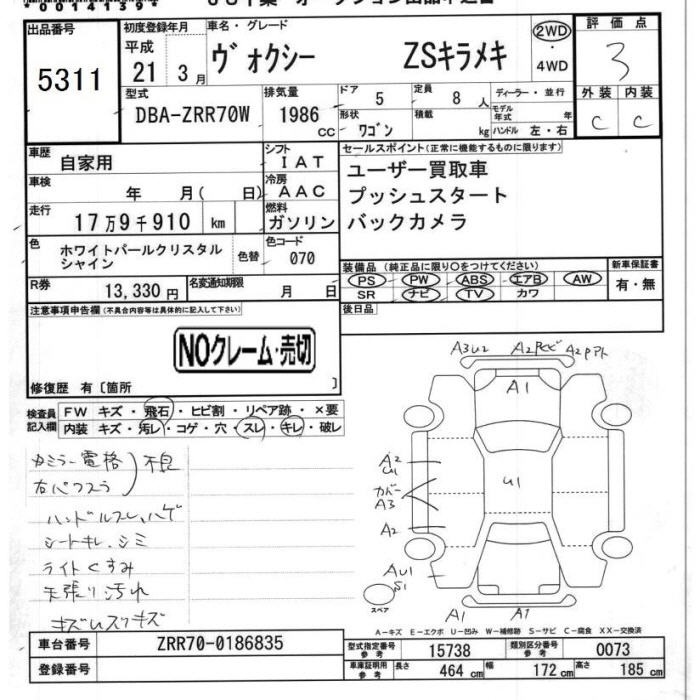 00141394
出品番号 初度登録年月 車名・グレード 2WD 評価点
5311 平成 21 3月 ヴォクシー ZSキラメキ ・4WD 3
型式 排気量 ドア 5 定員 8人 ディーラー・並行 外装 内装
DBA-ZRR70W 1986 cc 形状 ワゴン 積載 kg モデル年式 年 ハンドル 左・右 C C
車歴 自家用 シフト IAT セールスポイント(正常に機能するものに限ります)
車検 年 月( 日) 冷房 AAC ユーザー買取車
プッシュスタート
走行 17万9千910 km 燃料 ガソリン バックカメラ
色 ホワイトパールクリスタル 色替 色コード 070
シャイン
装備品(純正品に限り○をつけてください) 新車保証書
R券 13,330円 名変通知期限 月 日 PS PW ABS エアB AW 有・無
SR ナビ TV カワ
注意事項申告欄(不具合内容等は具体的に記入して下さい) 後日品
NOクレーム・売切
修復歴 有〔箇所 〕
A3U2 A2PCビ A2Pアト
A1
検査員 FW キズ・飛石・ヒビ割・リペア跡・×要
記入欄 内装 キズ・汚レ・コゲ・穴・スレ・キレ・破レ
カミラー電格 不良
右パワスラ
ハンドルスレ、ハゲ
シートキレ、シミ
ライトくすみ
天張り汚れ
キズムスリキズ
A2
U1
カバー
A3
U1
A2
AU1
S1
スペア
A1 A1
A-キズ E-エクボ U-凹み W-補修跡 S-サビ C-腐食 XX-交換済
車台番号 ZRR70-0186835 型式指定番号 参考 15738 類別区分番号 参考 0073
登録番号 車庫証明用 参考 長さ 464 cm 幅 172 cm 高さ 185 cm